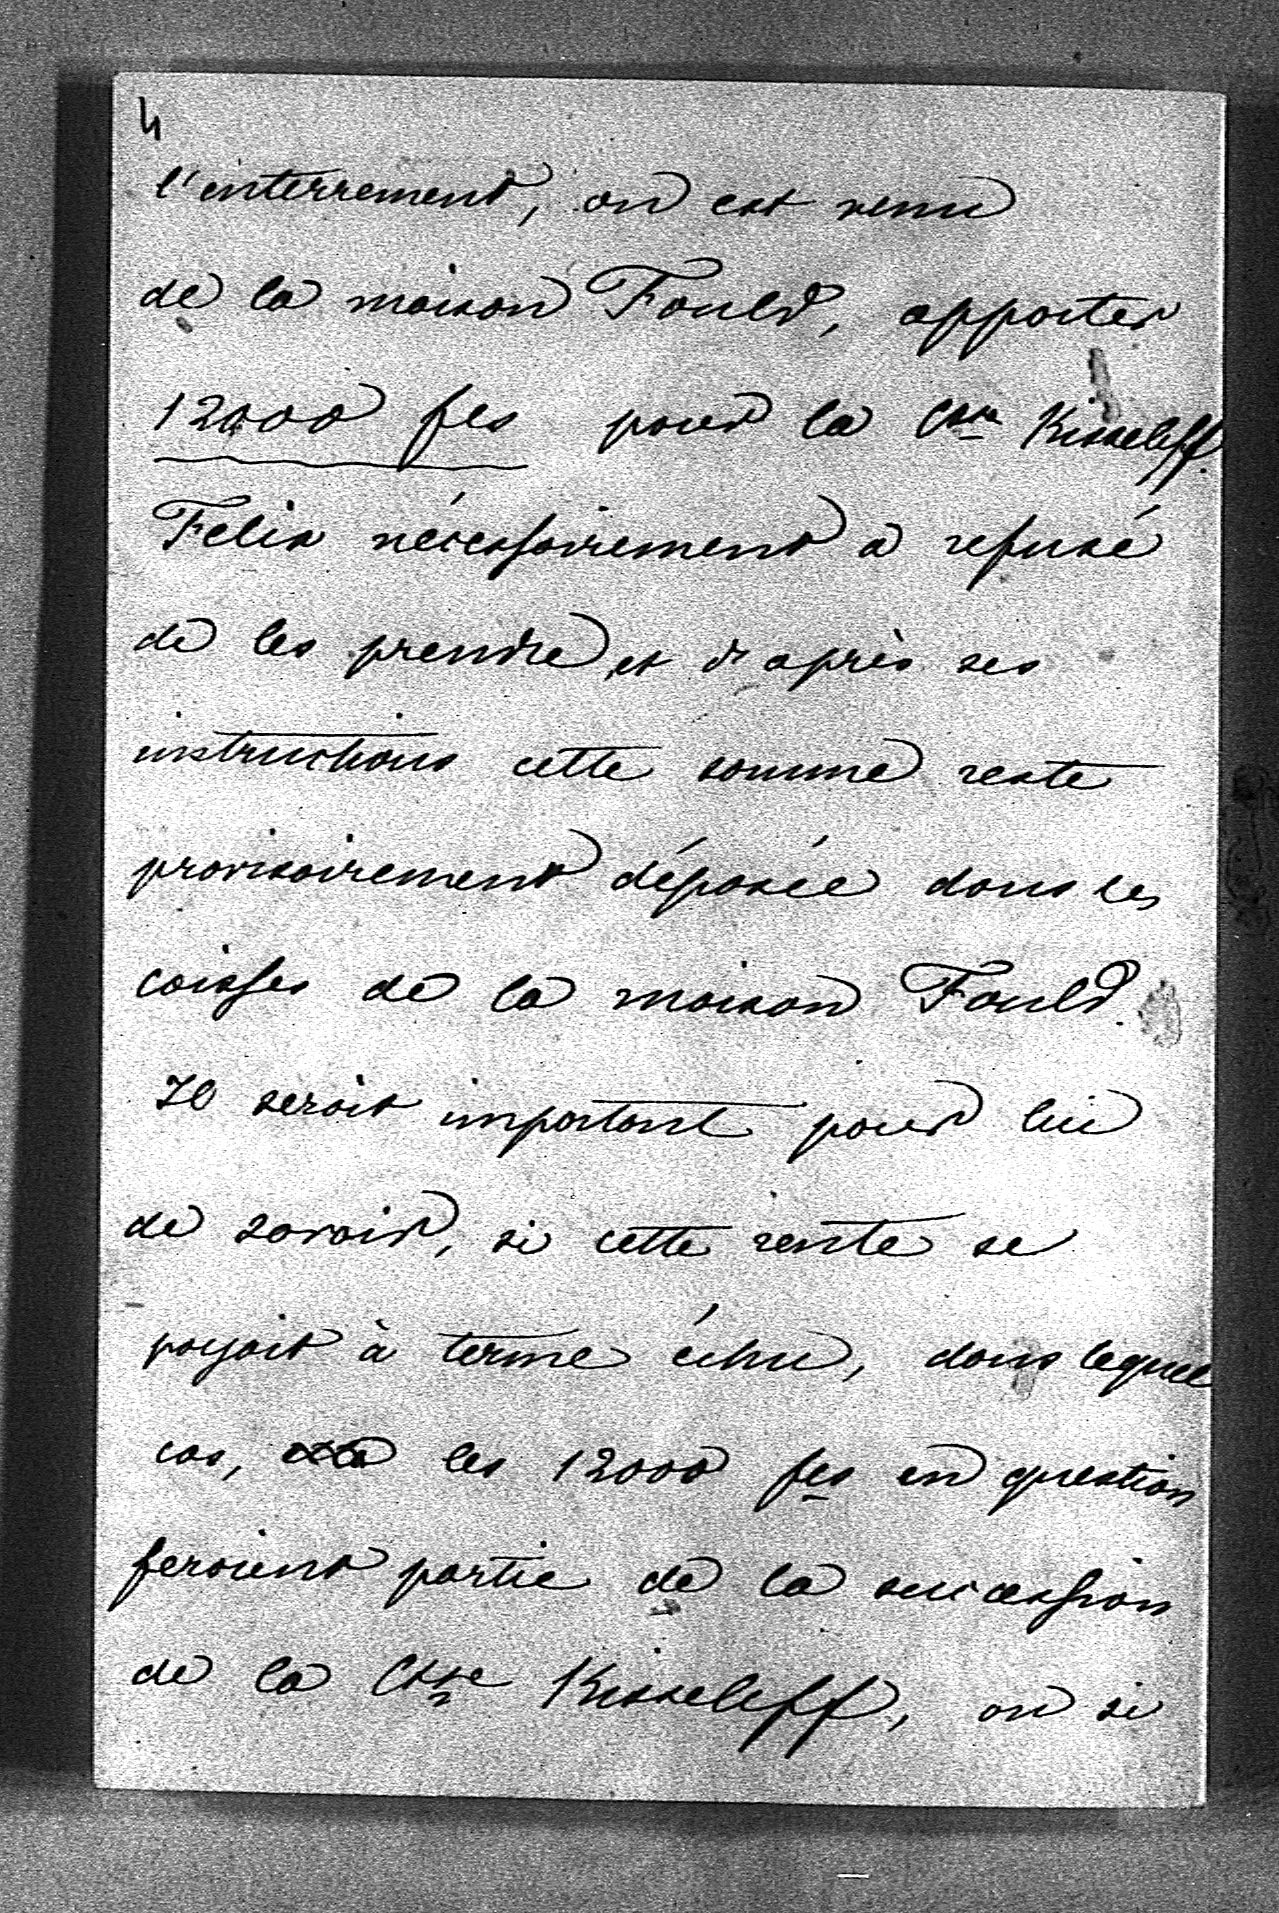 4
l'enterrement, on est venu
de la maison Fould, apporter
12000 fcs pour la Csse Kisseleff.
Felix nécessairement a refusé
de les prendre, et d'après ses
instructions cette somme reste
provisoirement déposée dans les
caisses de la maison Fould.
Il seroit important pour lui
de savoir, si cette rente se
payoit à terme échu, dans lequel
cas, les 12000 fcs en question
feroient partie de la succession
de la Csse Kisseleff, ou si